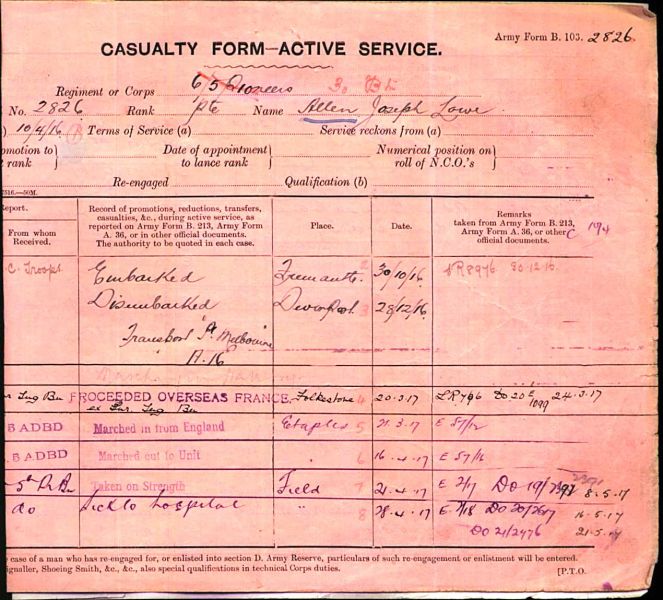 Army Form B. 103. 2826
CASUALTY FORM—ACTIVE SERVICE.
Regiment or Corps 6/5 Pioneers
No. 2826 Rank Pte Name Allen Joseph Lowe
) 10/4/16 Terms of Service (a) Service reckons from (a)
omotion to Date of appointment Numerical position on
rank to lance rank roll of N.C.O.'s
Re-engaged Qualification (b)
7516.—50M.
eport.
From whom Received.
Record of promotions, reductions, transfers, casualties, &c., during active service, as reported on Army Form B. 213, Army Form A. 36, or in other official documents. The authority to be quoted in each case.
Place.
Date.
Remarks taken from Army Form B. 213, Army Form A. 36, or other official documents.
C. Troops Embarked Fremantle 2 30/10/16 R8976 30.12.16
Disembarked Devonport 3 28/12/16
Transport "A. Melbourne
A.16
Trng Bn PROCEEDED OVERSEAS FRANCE. Folkestone 4 20.3.17 24.3.17
Trng Bn
BADBD Marched in from England Etaples 5 21.3.17 E 57/12
BADBD Marched out to Unit 6 16.4.17 E 57/16
5th Taken on Strength Field 7 21.4.17 E 2/7 DO 19/ 8.5.17
do Sick to hospital " 8 28.4.17 E 7/18 DO 16.5.17
DO 21/2476 21.5.17
e case of a man who has re-engaged for, or enlisted into section D. Army Reserve, particulars of such re-engagement or enlistment will be entered.
ignaller, Shoeing Smith, &c., &c., also special qualifications in technical Corps duties. [P.T.O.